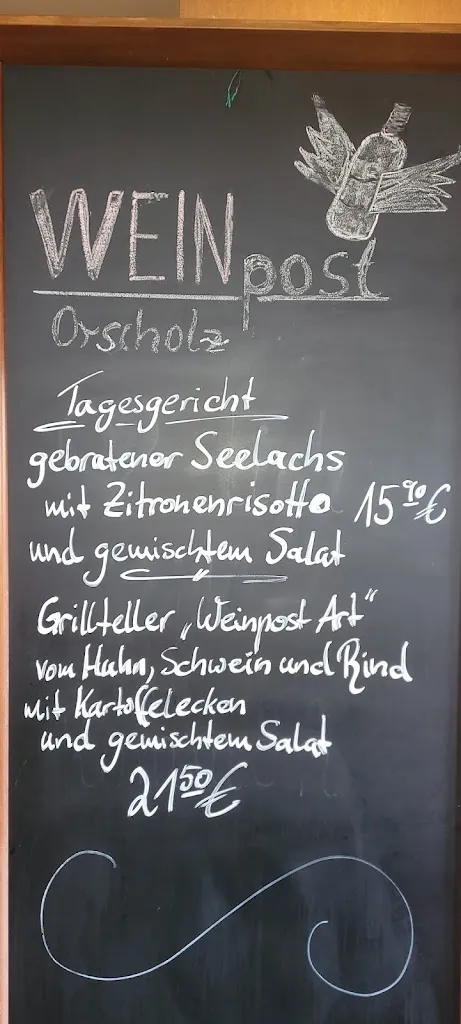 WEINpost
Orscholz
Tagesgericht
gebratener Seelachs
mit Zitronenrisotto 15,90 €
und gemischtem Salat
Grillteller „Weinpost Art"
vom Huhn, Schwein und Rind
mit Kartoffelecken
und gemischtem Salat
21,50 €